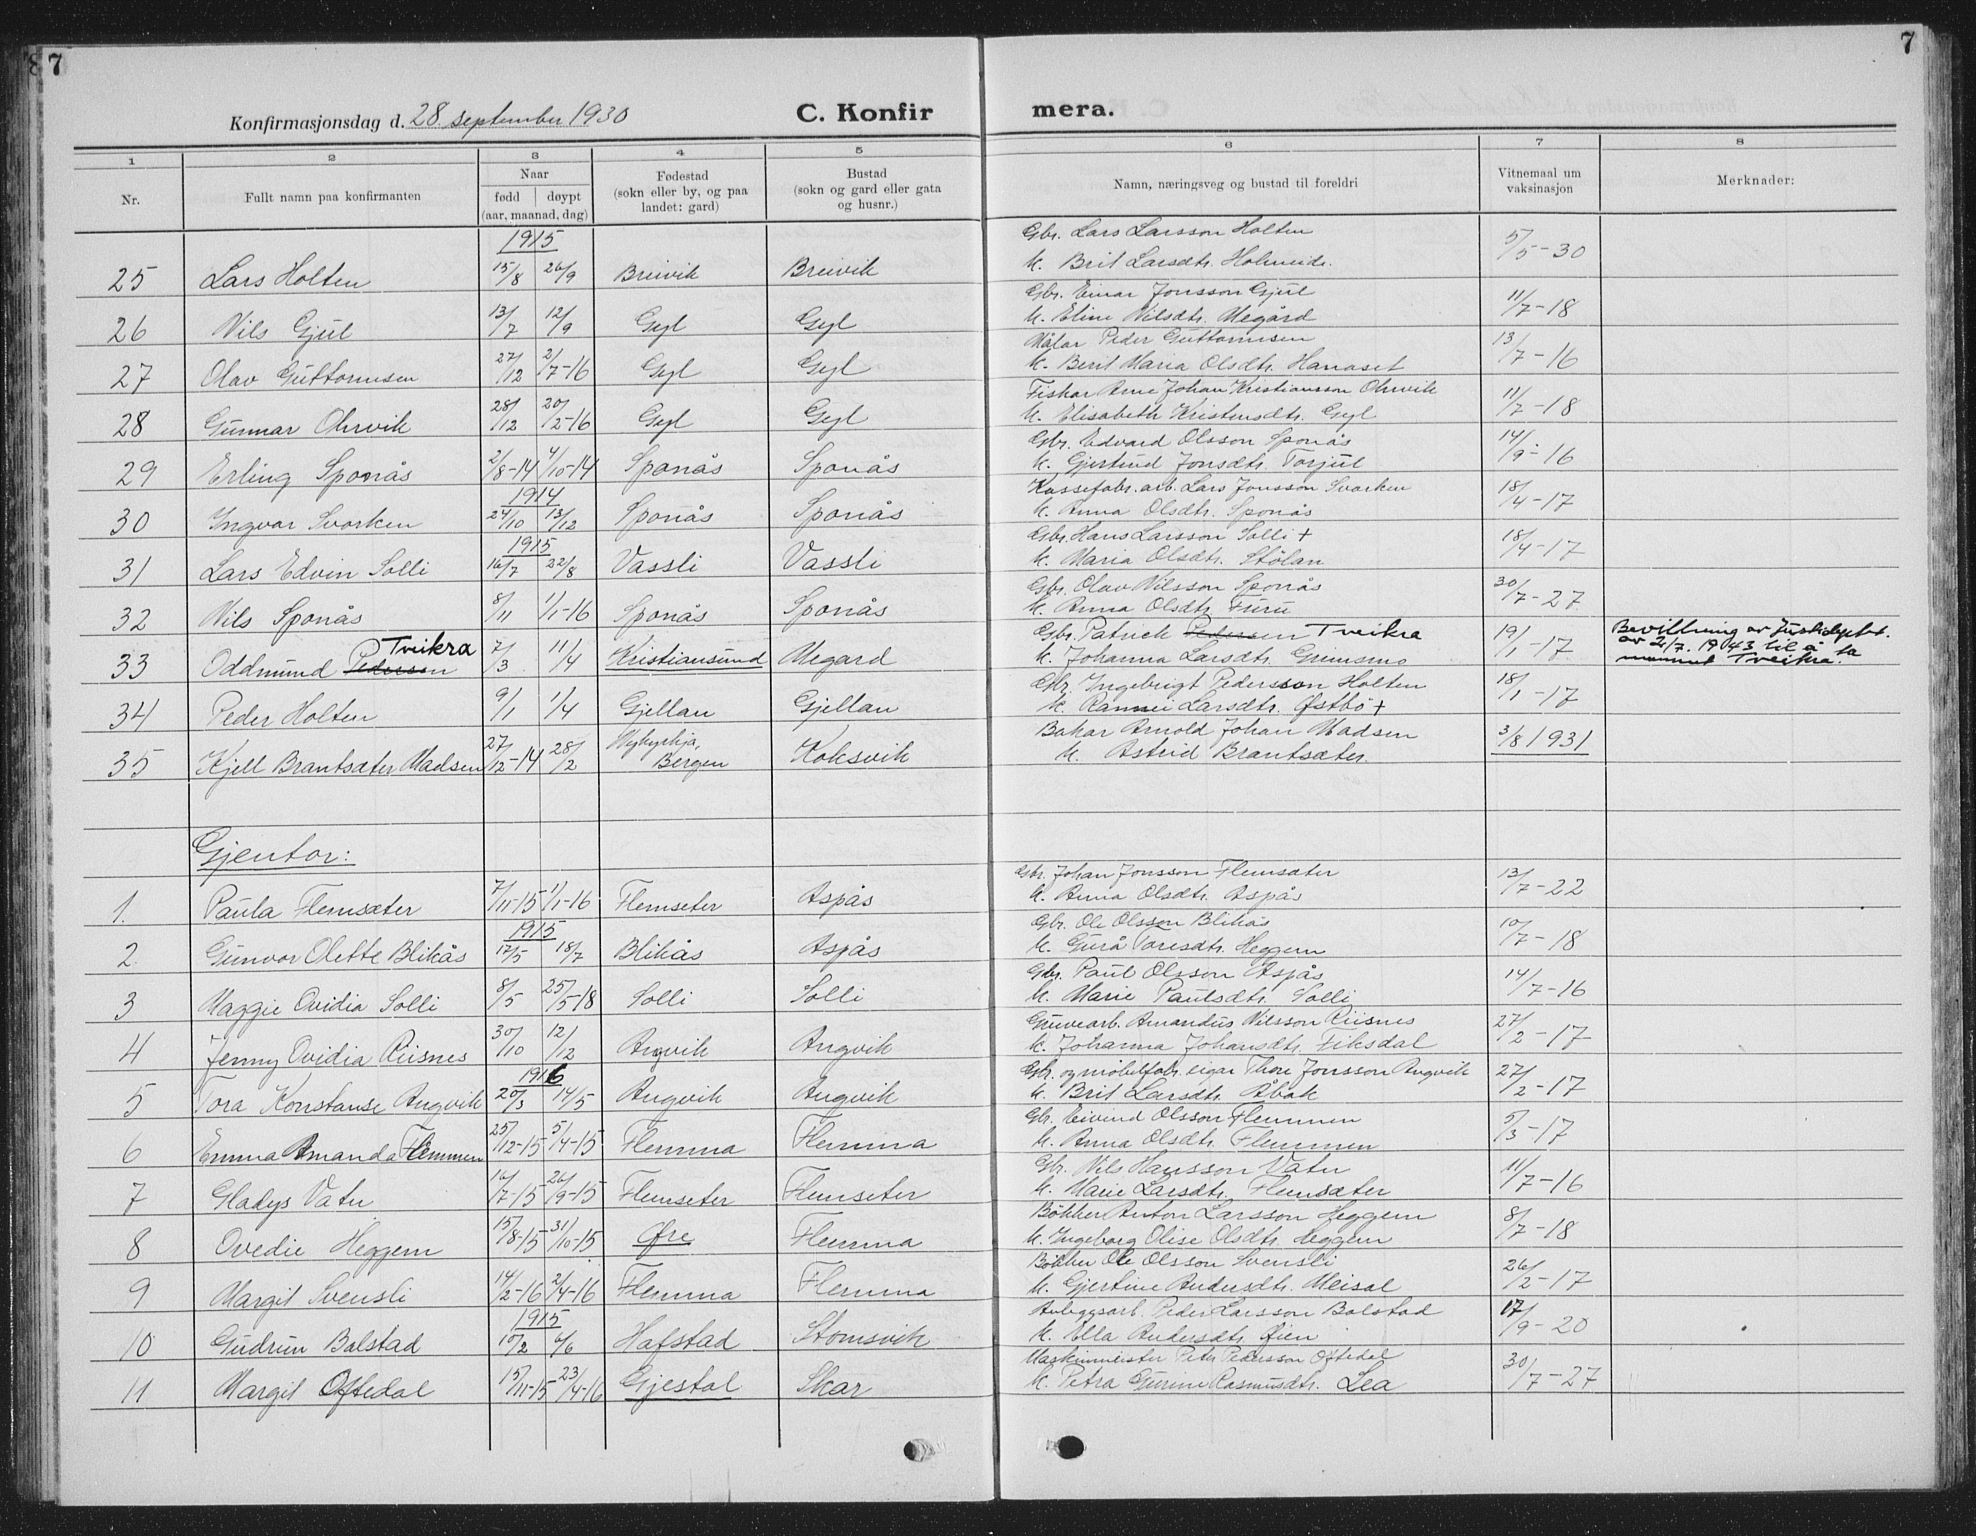 7
7
Konfirmasjonsdag d. 28. september 1930
C. Konfir
mera.
1 2 3 4 5 6 7 8
Nr.
Fullt namn paa konfirmanten
Naar
fødd døypt
(aar, maanad, dag)
Fødestad
(sokn eller by, og paa
landet: gard)
Bustad
(sokn og gard eller gata
og husnr.)
Namn, næringsveg og bustad til foreldri
Vitnemaal um
vaksinasjon
Merknader:
1915
25 Lars Holten 15/8 26/9 Breivik Breivik Gbr. Lars Larsson Holten 5/5-30
k. Brit Larsdtr.
26 Nils Gjul 13/7 12/9 Gyl Gyl Gbr. Einar Jonsson Gjul 11/7-18
k. Eline Nilsdtr. Megård
27 Olav Guttormsen 27/12 2/7-16 Gyl Gyl Målar Peder Guttormsen 13/7-16
k. Berit Maria Olsdtr. Hanaset
28 Gunnar Ohrvik 28/12 20/2-16 Gyl Gyl Fiskar Arne Johan Kristiansson Ohrvik 11/7-18
k. Elisabeth Kristensdtr. Gyl
29 Erling Sponås 2/8-14 4/10-14 Sponås Sponås Gbr. Edvard Olsson Sponås 14/9-16
k. Gjertrud Jonsdtr. Torjul
1914
30 Ingvar Svorken 24/10 13/12 Sponås Sponås Kassefabr. arb. Lars Jonsson Svorken 18/4-17
k. Anna Olsdtr. Sponås
1915
31 Lars Edvin Solli 16/7 22/8 Vassli Vassli Gbr. Hans Larsson Solli + 18/4-17
k. Maria Olsdtr. Stölan
32 Nils Sponås 8/11 1/1-16 Sponås Sponås Gbr. Olav Nilsson Sponås 30/7-27
k. Anna Olsdtr. Furu
33 Oddmund Pedersen Tveikra 7/3 11/4 Kristiansund Megard Gbr. Patrick Pedersen Tveikra 19/1-17
k. Johanna Larsdtr. Grimsmo
Bevilling av Justisdeptet.
av 2/7. 1943 til å ta
namnet Tveikra.
34 Peder Holten 9/1 1/4 Gjellan Gjellan Gbr. Ingebrigt Pedersson Holten 18/1-17
k. Rannei Larsdtr. Østbö +
35 Kjell Brantsæter Madsen 27/12-14 28/2 Nykyrkja, Bergen Koksvik Bakar Arnold Johan Madsen 3/8 1931
k. Astrid Brantsæter
Gjentor:
1. Paula Flemsæter 7/11-15 1/1-16 Flemseter Aspås Gbr. Johan Jonsson Flemsæter 13/7-22
k. Anna Olsdtr. Aspås
1915
2 Gunvor Olette Blikås 17/5 18/7 Blikås Aspås Gbr. Ole Olsson Blikås 10/7-18
k. Gurå Toresdtr. Heggem
3 Maggie Ovidia Solli 8/5 25/5-18 Solli Solli Gbr. Paul Olsson Aspås 14/7-16
k. Marie Paulsdtr. Solli
4 Jenny Ovidia Riisnes 30/10 12/12 Angvik Angvik Gruvearb. Amandus Nilsson Riisnes 27/2-17
k. Johanna Johansdtr. Fiksdal
1916
5 Tora Konstanse Angvik 20/3 14/5 Angvik Angvik Gbr. og möbelfabr. eigar Thore Jonsson Angvik 27/2-17
k. Brit Larsdtr. Åbak
6 Emma Amanda Flemmen 25/12-15 5/4-15 Flemma Flemma Gbr. Eivind Olsson Flemmen 5/3-17
k. Anna Olsdtr. Flemmen
7 Gladys Vatn 16/7-15 26/9-15 Flemseter Flemseter Gbr. Nils Hansson Vatn 11/7-16
k. Marie Larsdtr. Flemsæter
8 Ovedie Heggem 15/8-15 31/10-15 Øre Flemma Bökker Anton Larsson Heggem 8/7-18
k. Ingeborg Olise Olsdtr. Heggem
9 Margit Svensli 14/2-16 2/4-16 Flemma Flemma Bökker Ole Olsson Svensli 26/2-17
k. Gjertine Andersdtr. Meisal
1915
10 Gudrun Bolstad 10/2 6/6 Hafstad Stomsvik Anleggsarb. Peder Larsson Bolstad 17/9-20
k. Ella Andersdtr. Øien
11 Margit Oftedal 15/11-15 23/4-16 Gjestal Skar Maskinmeister Peter Pedersson Oftedal 30/7-27
k. Petra Gurine Rasmusdtr. Lea